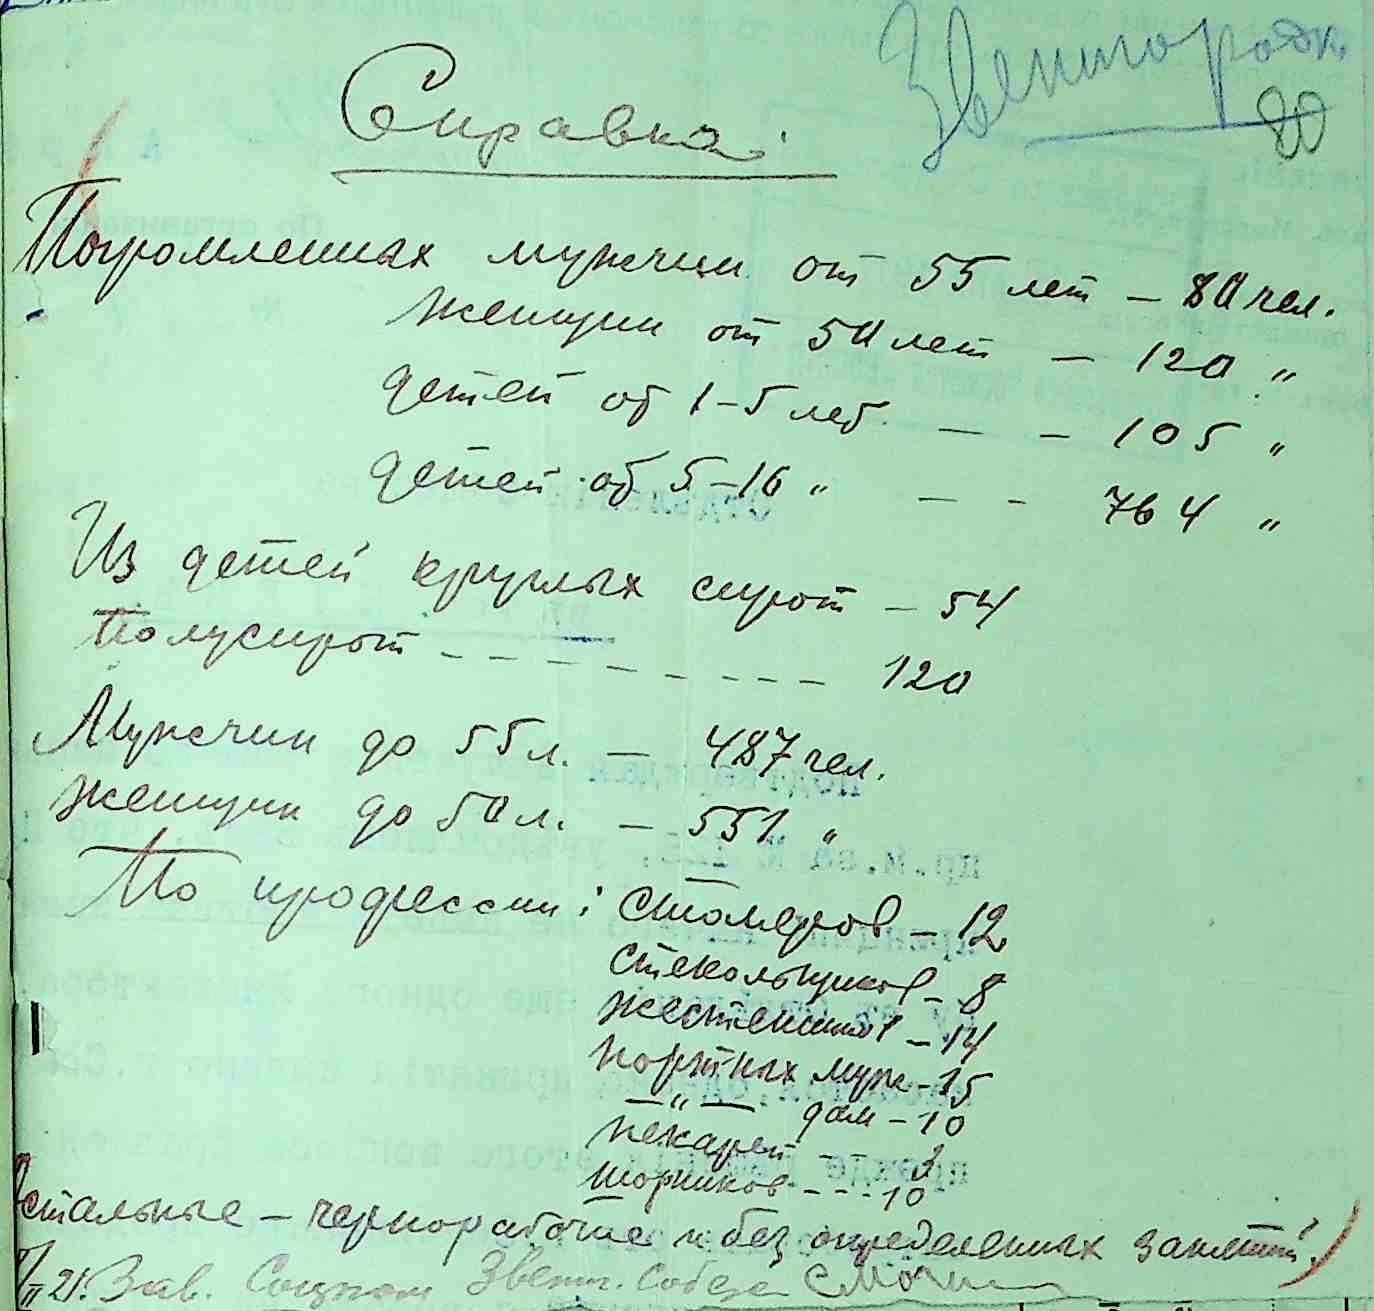 Звенигородк.
80
Справка.
Погромленных мужчин от 55 лет – 80 чел.
женщин от 50 лет – 120 "
детей от 1–5 лет – – 105 "
детей от 5–16 " – – 764 "
Из детей круглых сирот – 54
Полусирот – – – – – – – – 120
Мужчин до 55 л. – 487 чел.
женщин до 50 л. – 551 "
По профессии: столяров – 12
стекольщиков – 8
жестенщиков – 14
портных муж – 15
– " – дам – 10
пекарей – – 3
шорников – – – 10
Остальные – чернорабочие и без определенных занятий.
21. Зав. Звен. Собеса